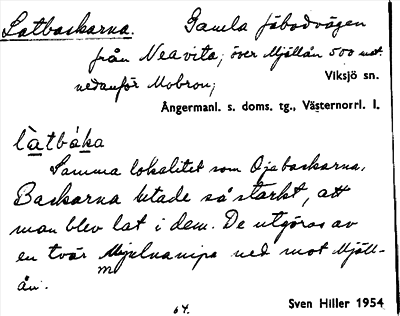 Latbackarna. Gamla fäbodvägen
från Neavita, över Mjällån 500 mt.
nedanför Mobron;
Viksjö sn.
Ångermanl. s. doms. tg., Västernorrl. l.
làtbáka
Samma lokalitet som Öjebackarna.
Backarna betade så starkt, att
man blev lat i dem. De utgöras av
en tvär mjelnanipa ned mot Mjäll-
ån.
64.
Sven Hiller 1954